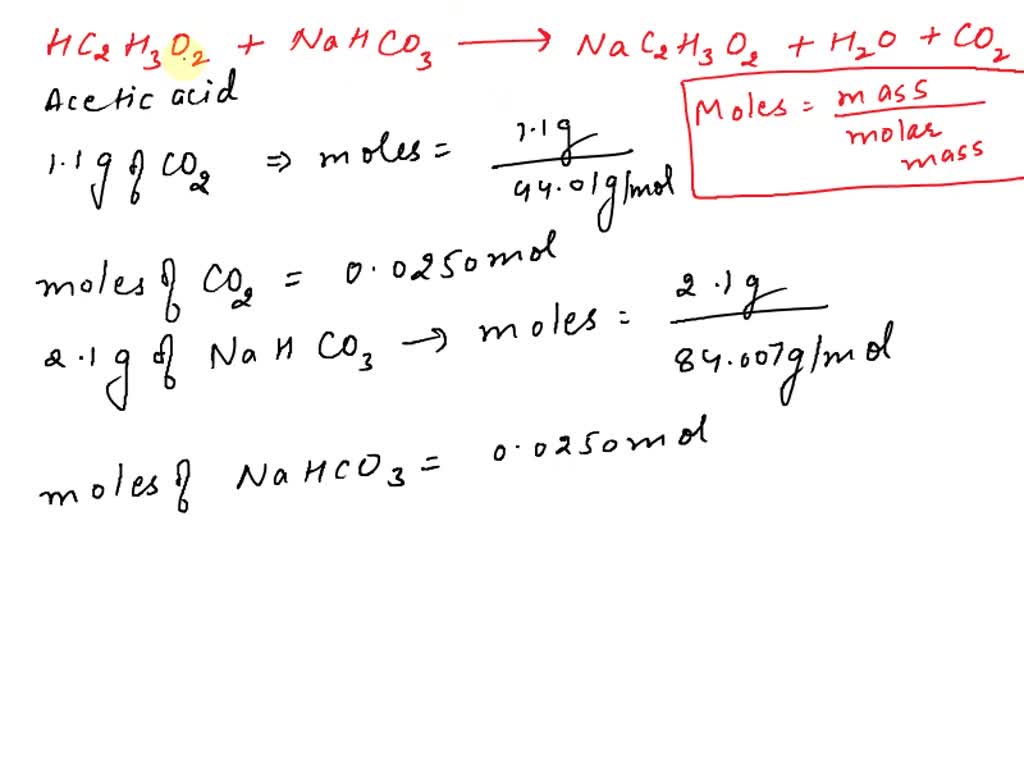 HC₂H₃O₂ + NaHCO₃ ⟶ NaC₂H₃O₂ + H₂O + CO₂
Acetic acid
Moles = mass / molar mass
1.1g of CO₂ ⇒ moles = 1.1g / 44.01g/mol
moles of CO₂ = 0.0250mol
2.1g of NaHCO₃ → moles = 2.1g / 84.007g/mol
moles of NaHCO₃ = 0.0250mol